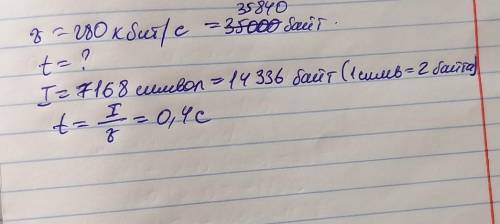 35840
γ = 280 кбит/с = 35000 байт.
t = ?
I = 7168 символ = 14336 байт (1 симв = 2 байта)
t = I/γ = 0,4 с